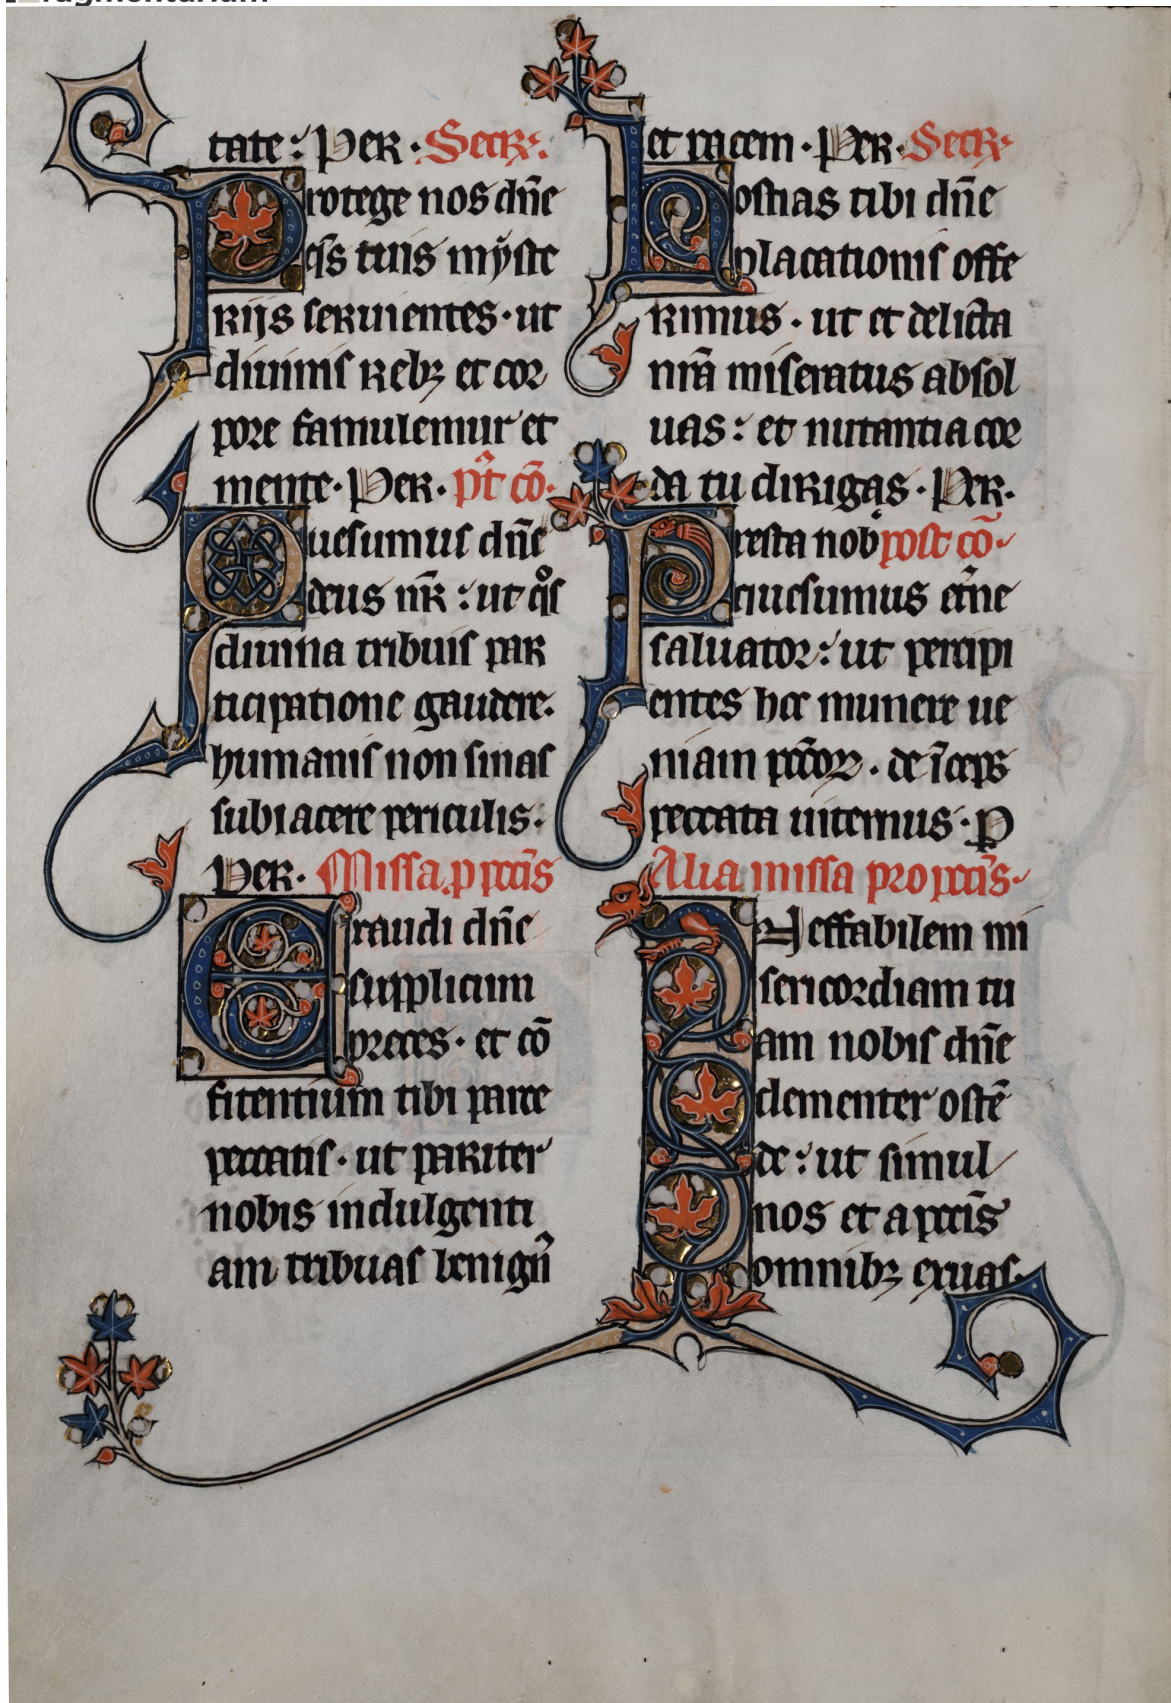 tate: Per. Secr̄.
Protege nos dn̄e
qs̄ tuis myste
rijs seruientes. ut
diuinis rebꝫ et cor
pore famulemur et
mente. Per. p̄t cō.
Quesumus dn̄e
deus nr̄: ut qͦs
diuina tribuis par
ticipatione gaudere.
humanis non sinas
subiacere periculis:
Per. Missa ꝓ pctī̄s
Exaudi dn̄e
supplicum
preces. et cō
fitentium tibi parce
peccatis. ut pariter
nobis indulgenti
am tribuas benign̄
et pacem. Per. Secr̄
Hostias tibi dn̄e
placationis offe
rimus. ut et delicta
nrā miseratus absol
uas: et nutantia cor
da tu dirigas. Per.
Presta nob post cō.
quesumus etn̄e
saluator: ut percipi
entes hoc munere ue
niam pctōꝝ. deīceps
peccata uitemus. P
Alia missa pro pctīs.
INeffabilem mi
sericordiam tu
am nobis dn̄e
clementer ostē
de: ut simul
nos et a pctīs
omnibꝫ exuas.